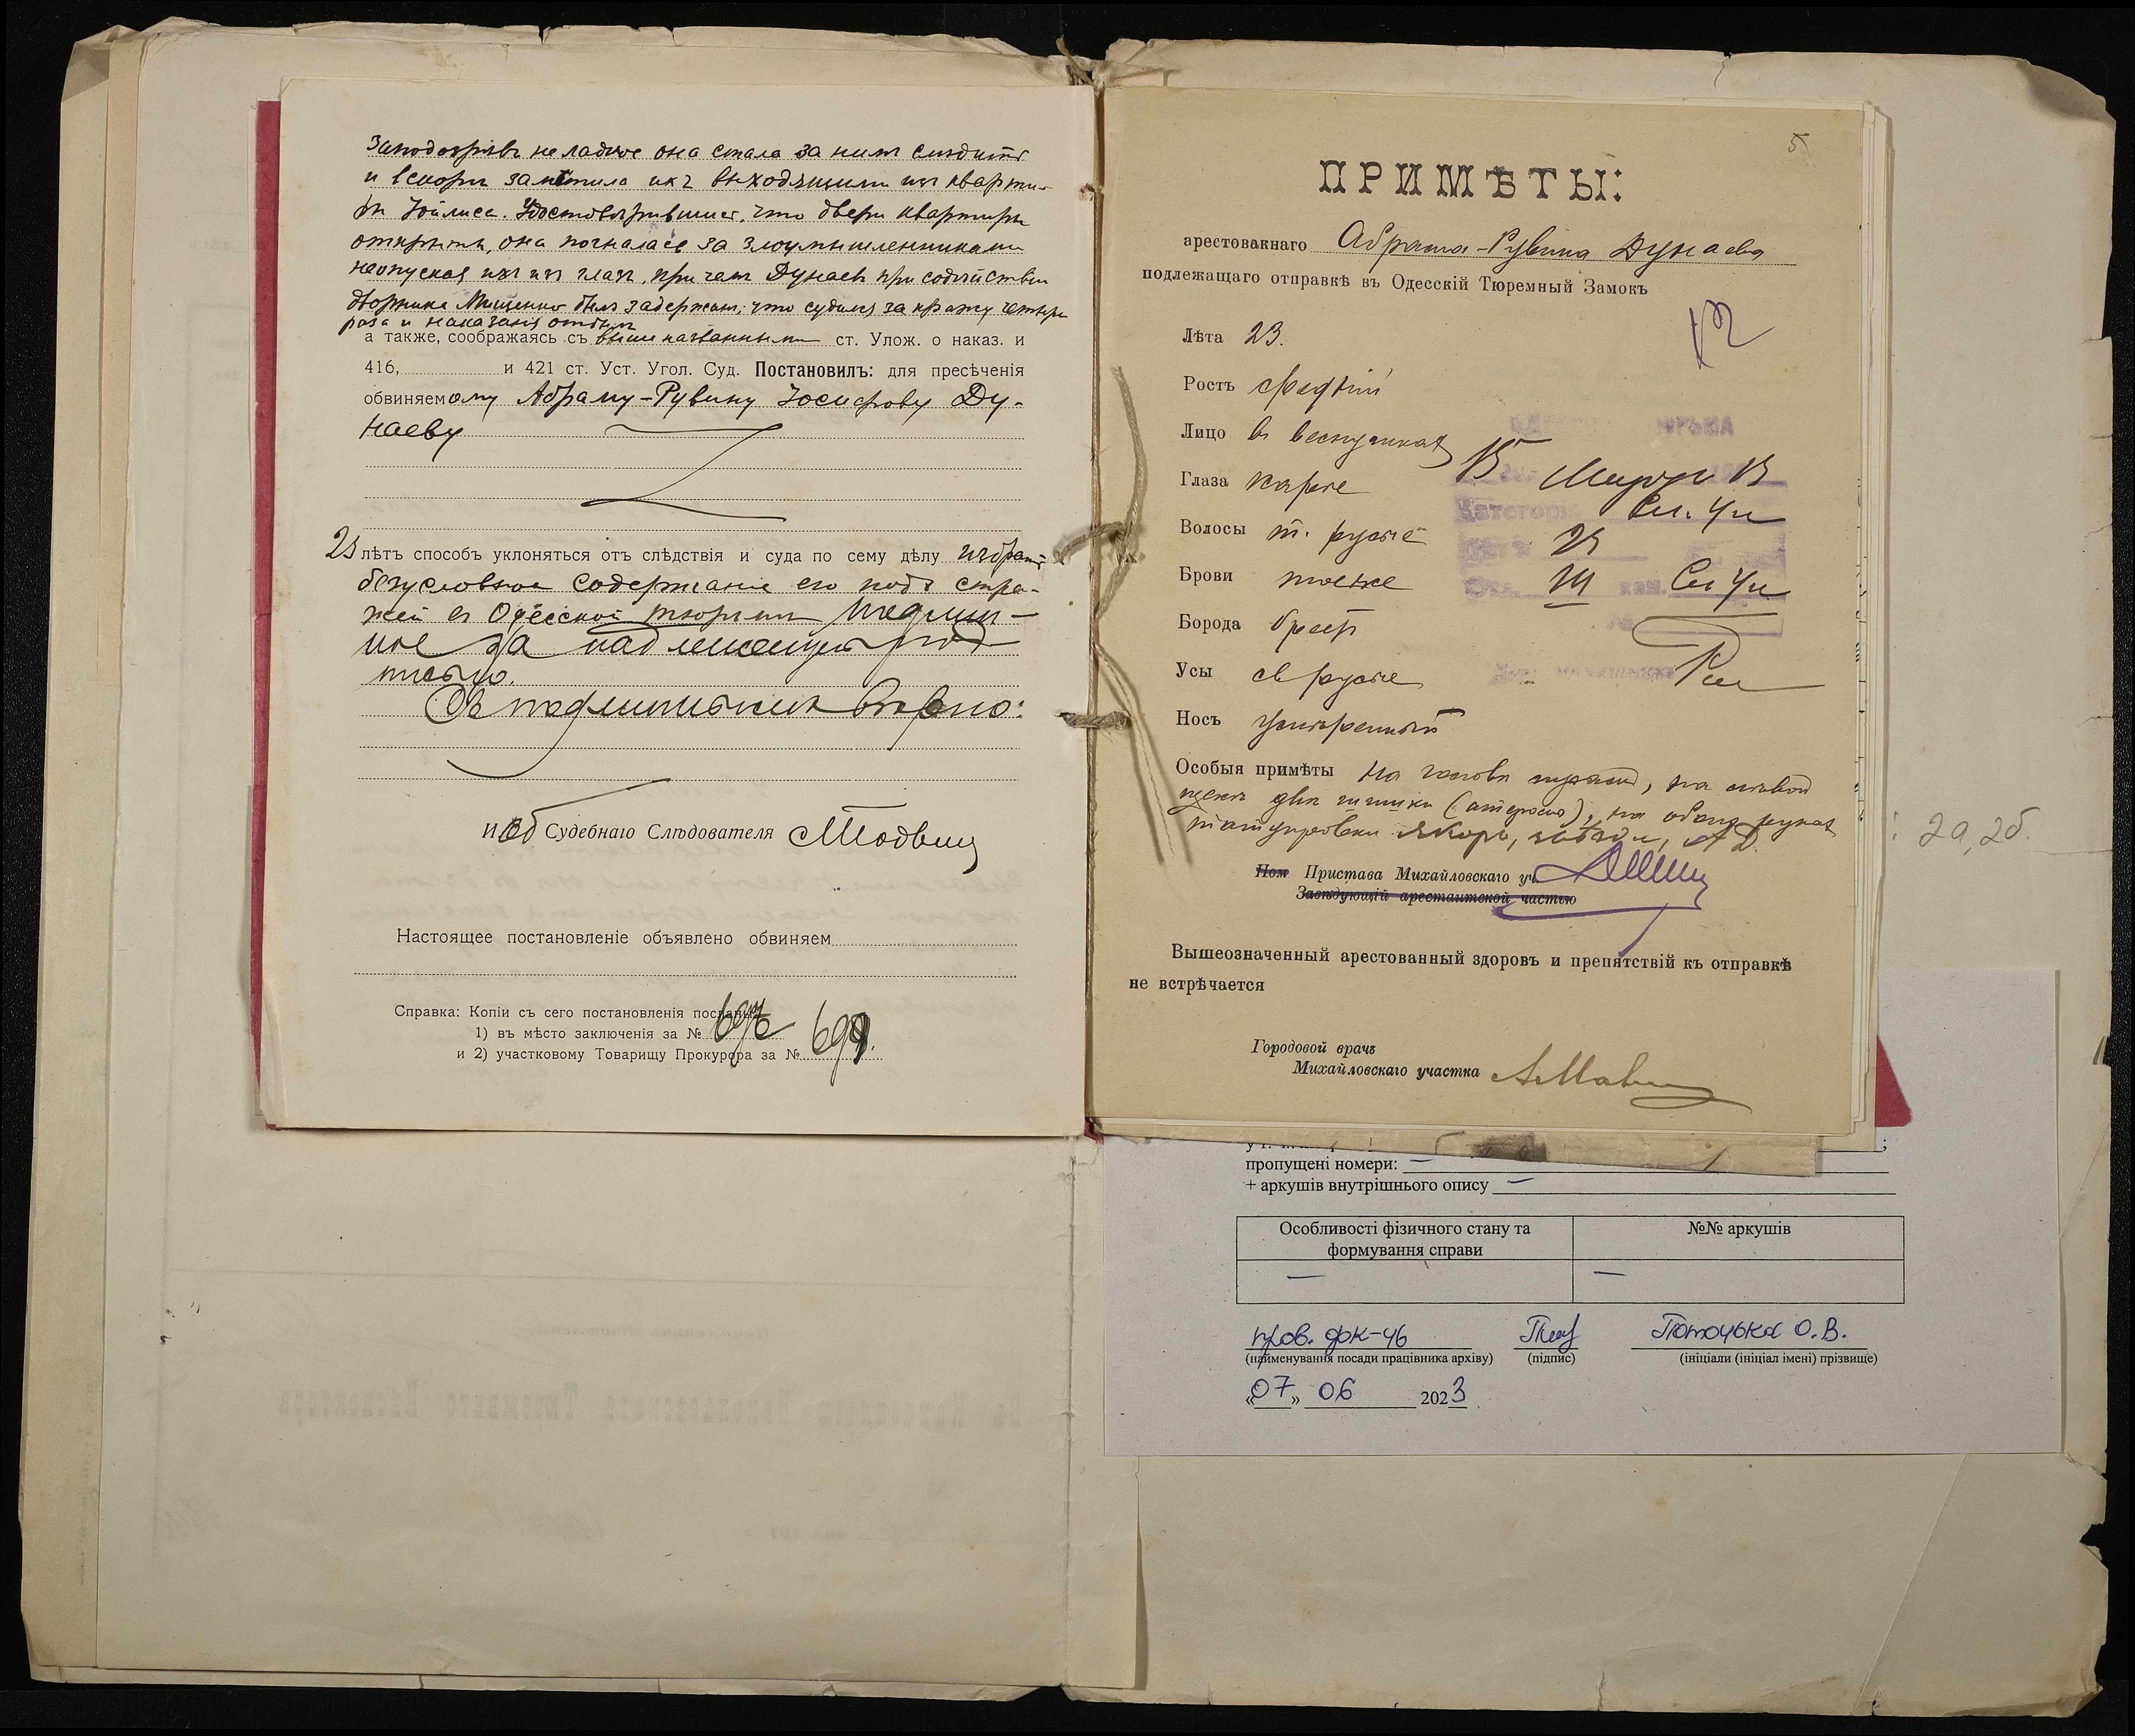 Заподозрѣвъ неладное она стала за ними слѣдить
и вскорѣ замѣтила ихъ выходящими изъ кварти-
ры Зойлиса. Удостовѣрившись, что двери квартиры
открыты, она погналась за злоумышленниками
не опуская ихъ изъ глазъ, при чемъ Дунаевъ при содѣйствіи
дворника Мищенко былъ задержанъ; что судился за кражу четыре
раза и наказанія отбылъ
а также, соображаясь съ вышеназванными ст. Улож. о наказ. и
416, и 421 ст. Уст. Угол. Суд. Постановилъ: для пресѣченія
обвиняемому Абраму-Рувину Іосифову Ду-
наеву
23 лѣтъ способъ уклоняться отъ слѣдствія и суда по сему дѣлу избрать
безусловное содержаніе его подъ стра-
жей въ Одесской тюрьмѣ подлин-
ное за надлежащей под
писью.
Съ подлиннымъ вѣрно:
И об Судебнаго Слѣдователя
Настоящее постановленіе объявлено обвиняем
Справка: Копіи съ сего постановленія посланы:
1) въ мѣсто заключенія за №
и 2) участковому Товарищу Прокурора за №
5
ПРИМѢТЫ:
арестованнаго Абрама-Рувина Дунаева
подлежащаго отправкѣ въ Одесскій Тюремный Замокъ
Лѣта 23.
Ростъ средній
Лицо въ веснушкахъ
Глаза каріе
Волосы т. русые
Брови тоже
Борода бреетъ
Усы св русые
Носъ умѣренный
Категорія
Особыя примѣты На головѣ шрамъ, на лѣвой
щекѣ двѣ шишки (атерома), на обѣихъ рукахъ
татуировки якорь, А Д.
Пом Пристава Михайловскаго уч.
Завѣдующій арестантской частью
Вышеозначенный арестованный здоровъ и препятствій къ отправкѣ
не встрѣчается
Городовой врачъ
Михайловскаго участка
2а, 2б.
пропущені номери: —
+ аркушів внутрішнього опису —
Особливості фізичного стану та
формування справи
№№ аркушів
—
—
пров. фк-46
(найменування посади працівника архіву) (підпис) (ініціали (ініціал імені) прізвище)
«07» 06 2023